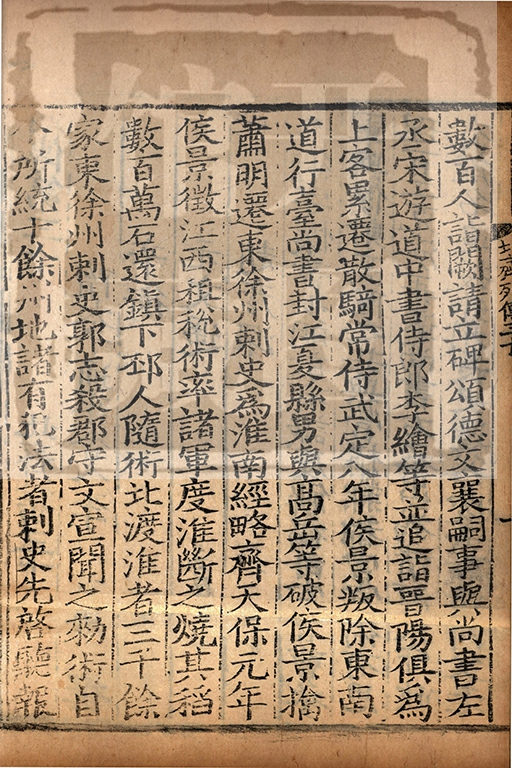 數百人詣闕請立碑頌德文襄嗣事與尚書左
丞宋遊道中書侍郎李繪等並追詣晉陽俱為
上客累遷散騎常侍武定八年侯景叛除東南
道行臺尚書封江夏縣男與高岳等破侯景擒
蕭明遷東徐州刺史為淮南經略齊天保元年
侯景徵江西租稅術率諸軍度淮斷之燒其稻
數百萬石還鎮下邳人隨術北渡淮者三千餘
家東徐州刺史郭志殺郡守文宣聞之勑術自
今所統十餘州地諸有犯法者刺史先啓聽報